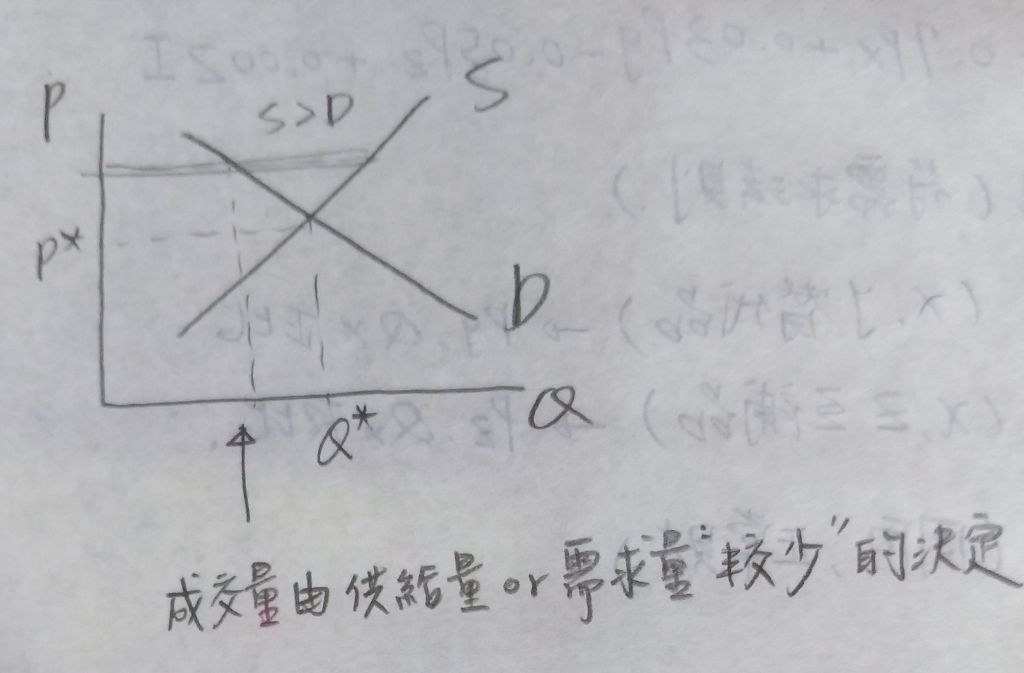 P
S
S>D
P*
D
Q*
Q
成交量由供給量or需求量"較少"的決定